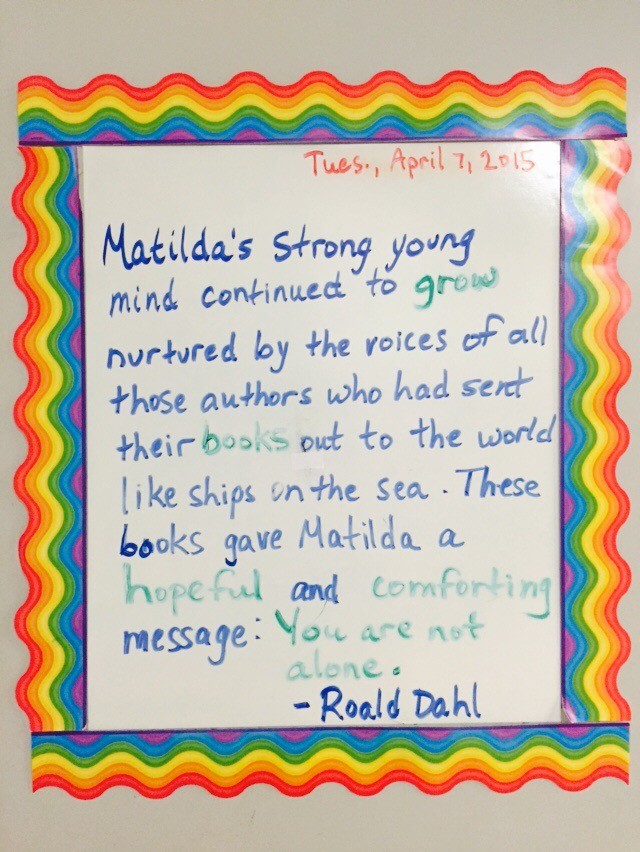 Tues., April 7, 2015
Matilda's Strong young
mind continued to grow
nurtured by the voices of all
those authors who had sent
their books out to the world
like ships on the sea. These
books gave Matilda a
hopeful and comforting
message: You are not
alone.
- Roald Dahl